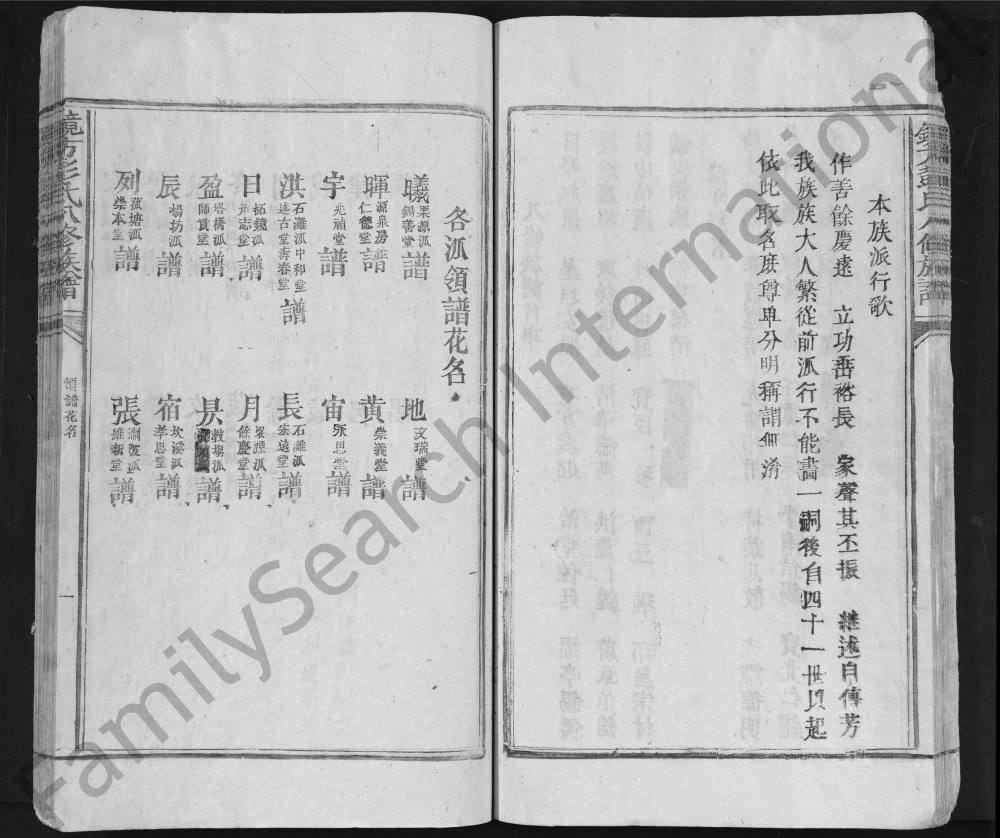 本族派行歌
作善餘慶遠 立功啚裕長 家聲其丕振 繼述自傳芳
我族族大人繁從前派行不能畫一嗣後自四十一世以起
依此取名庶尊卑分明稱謂無淆
各派領譜花名
曦 栗源派 錫善堂 譜
地 文瑞堂 譜
暉 源泉房 仁德堂 譜
黄 崇義堂 譜
宇 兆禎堂 譜
宙 永思堂 譜
洪 石灘派中和堂 遠古堂壽春堂 譜
長 石灘派 宏遠堂 譜
日 柘鏡派 志堂 譜
月 梁源派 餘慶堂 譜
盈 塔橋派 師貫堂 譜
昃 教場派 譜
辰 楊坊派 譜
宿 坎溪派 孝思堂 譜
列 塘派 崇本堂 譜
張 派 維新堂 譜
領譜花名
一
FamilySearch International